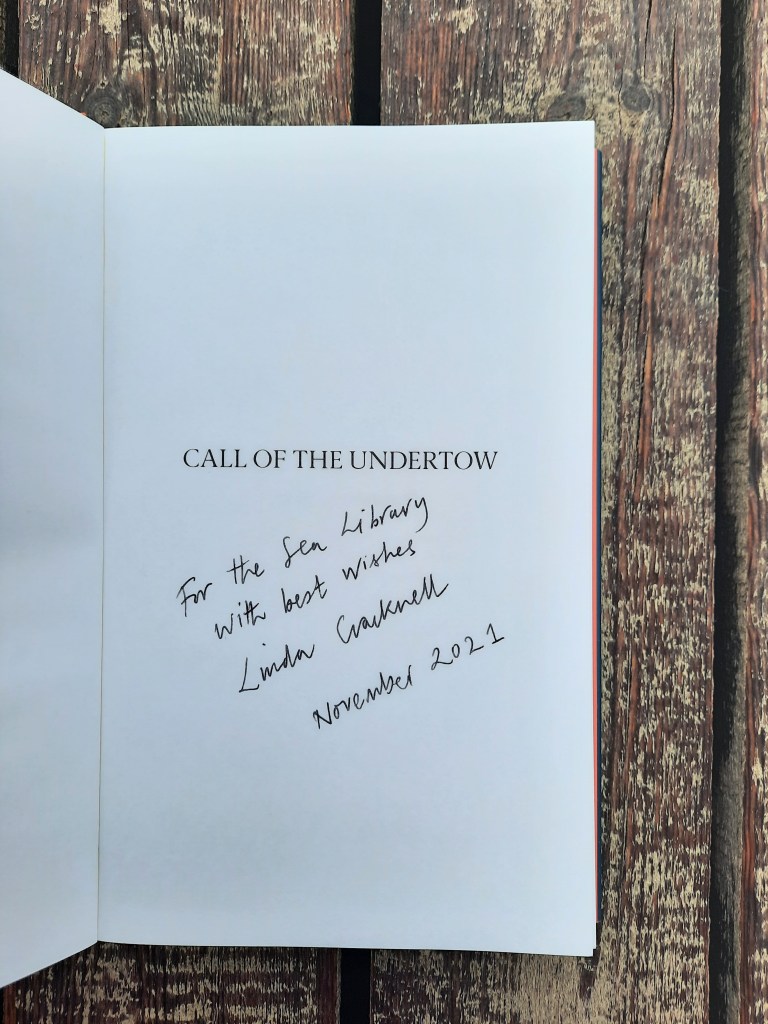 CALL OF THE UNDERTOW
For the Sea Library
with best wishes
Linda Cracknell
November 2021